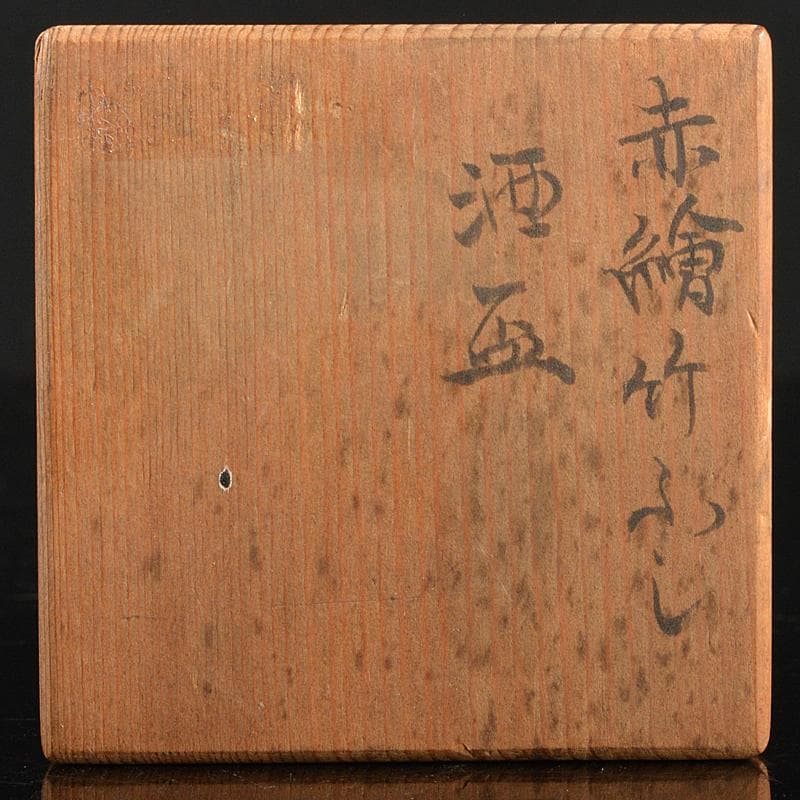 赤繪竹ふし
酒盃